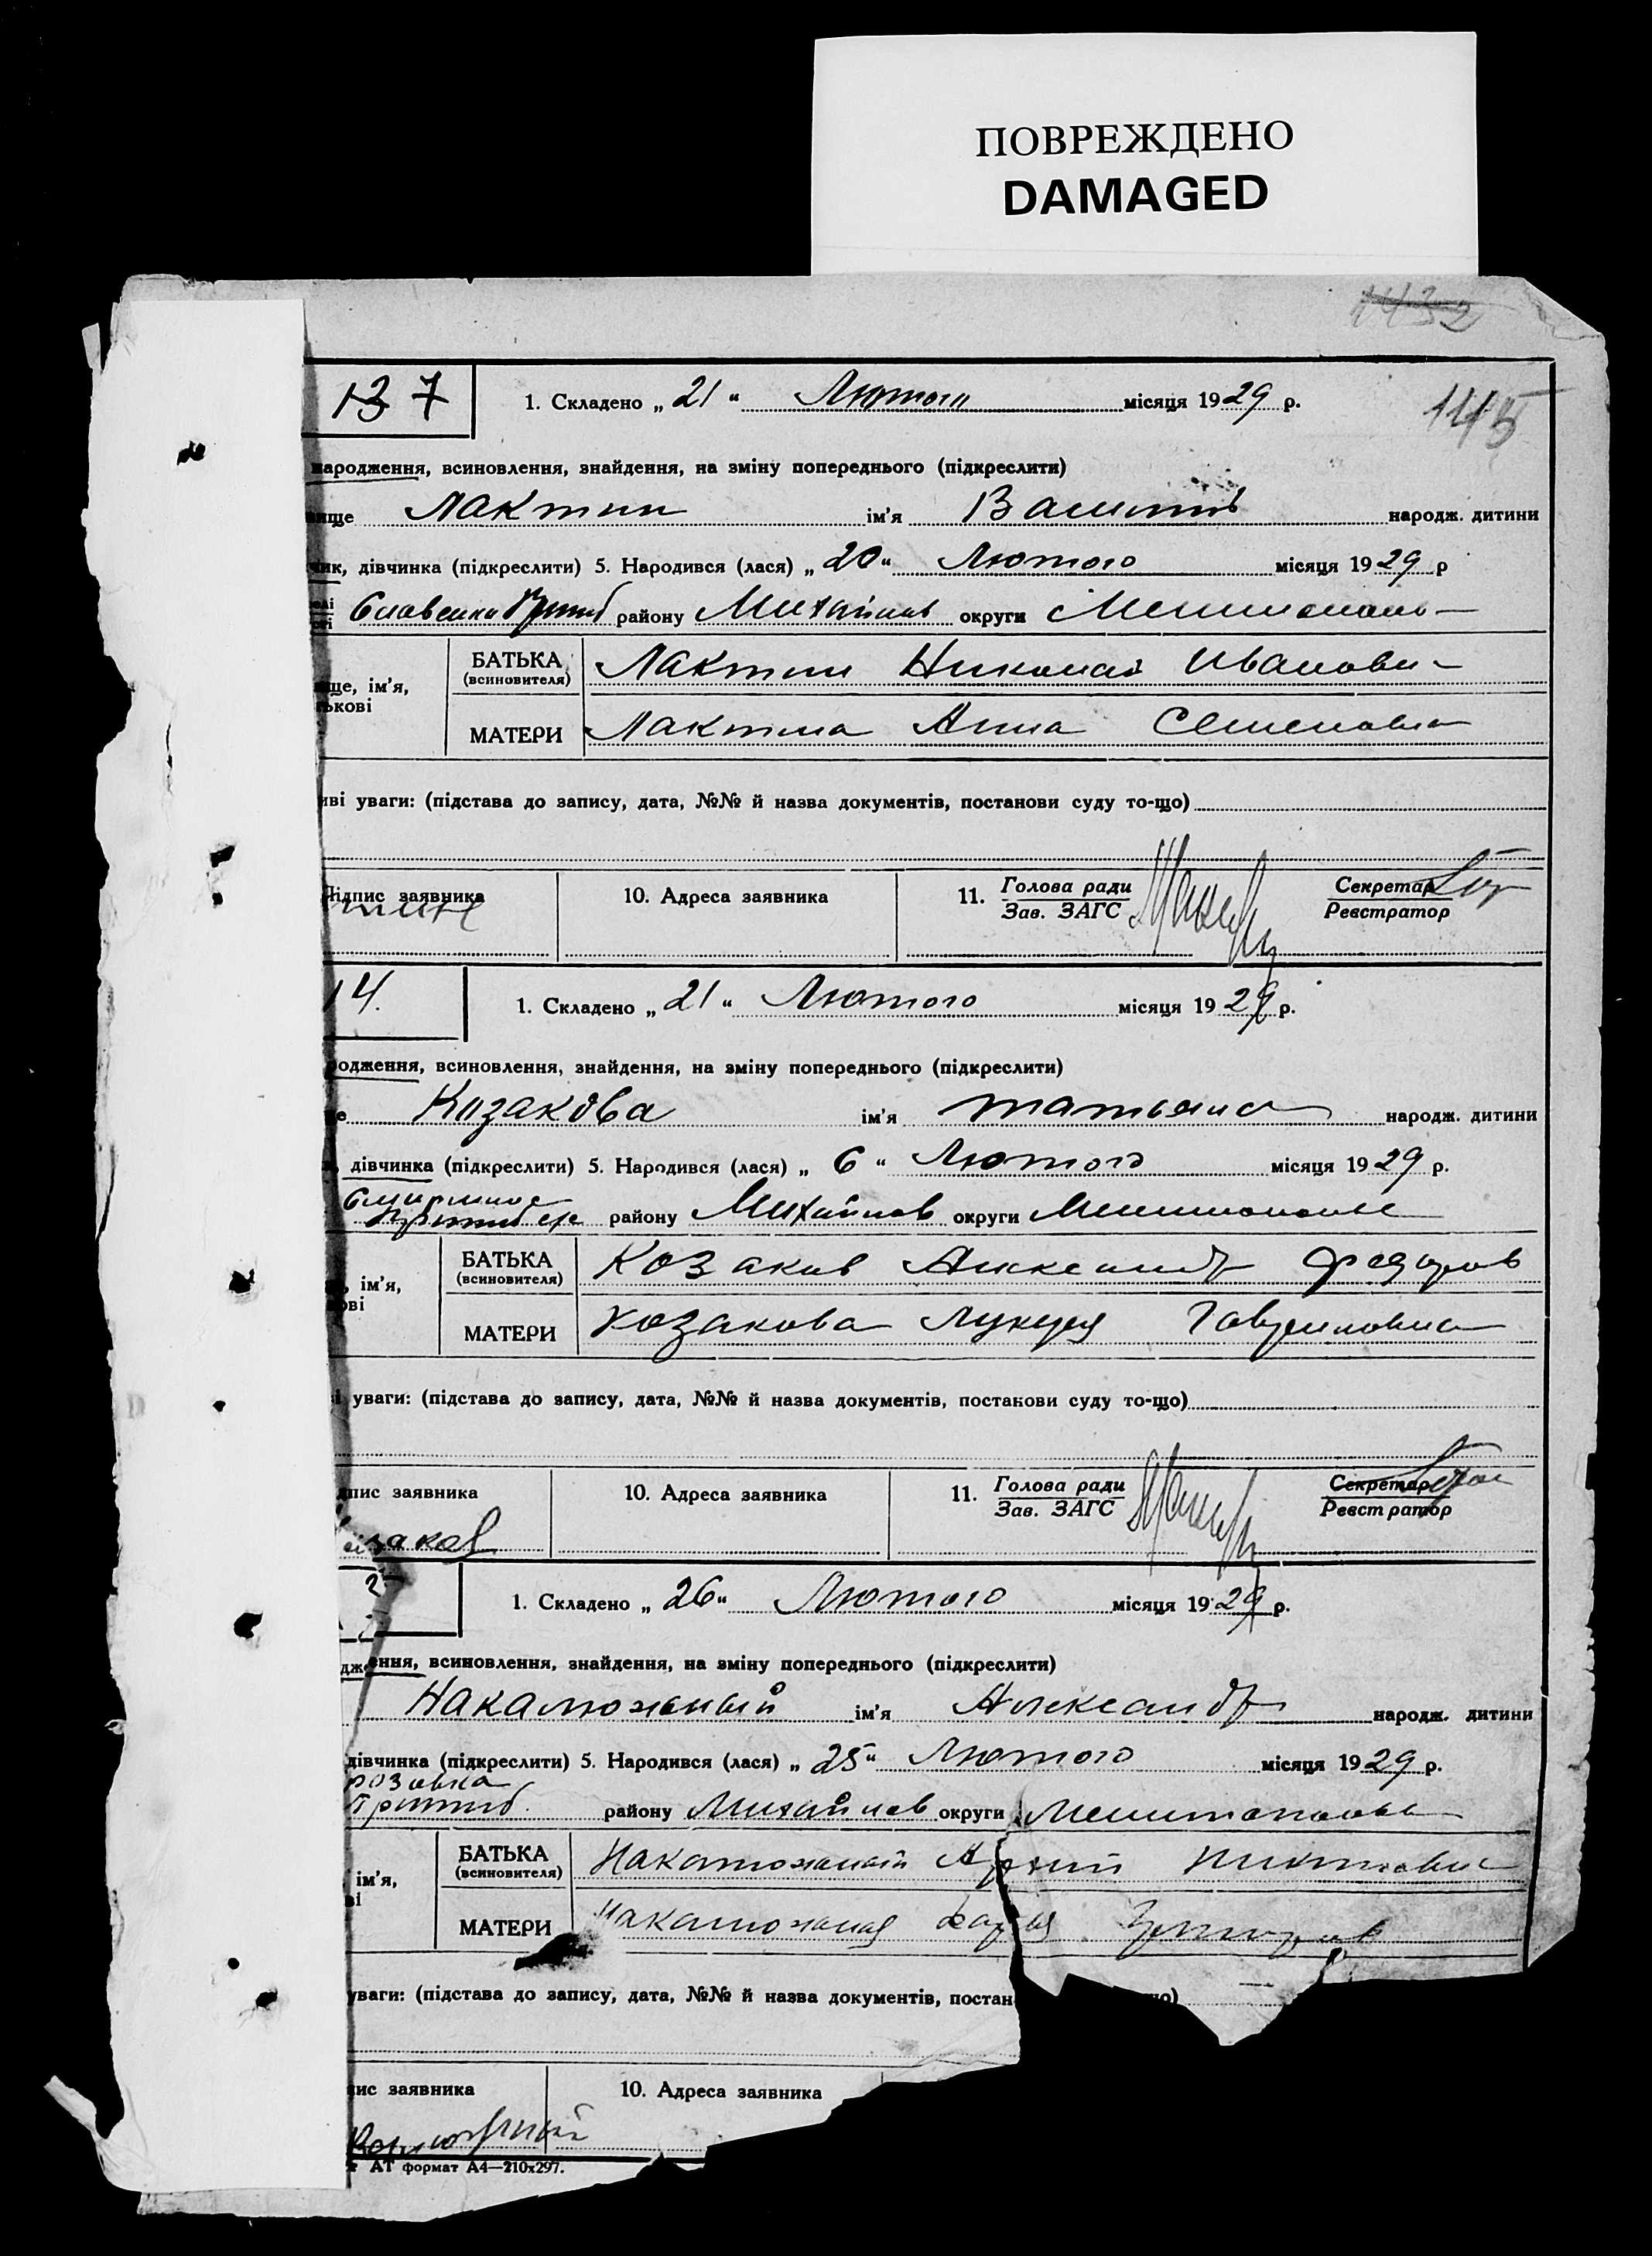 ПОВРЕЖДЕНО
DAMAGED
1432
137
1. Складено „ 21 “ Лютого місяця 1929 р.
145
народження, всиновлення, знайдення, на зміну попереднього (підкреслити)
вище Лактин ім'я народж. дитини
чик, дівчинка (підкреслити) 5. Народився (лася) „ 20 “ Лютого місяця 1929 р
району Михайлов округи
БАТЬКА (всиновителя) Лактин Николай Иванович
ще, ім'я,
ькові
МАТЕРИ Лактина Анна Семеновна
иві уваги: (підстава до запису, дата, №№ й назва документів, постанови суду то-що)
Підпис заявника 10. Адреса заявника 11. Голова ради Зав. ЗАГС Секретар Реєстратор
14.
1. Складено „ 21 “ Лютого місяця 1929 р.
одження, всиновлення, знайдення, на зміну попереднього (підкреслити)
е Козакова ім'я Татьяна народж. дитини
дівчинка (підкреслити) 5. Народився (лася) „ 6 “ Лютого місяця 1929 р.
району Михайлов округи
БАТЬКА (всиновителя) Козаков Александр Федоров
, ім'я,
ові
МАТЕРИ Козакова Лукеря Гавриловна
і уваги: (підстава до запису, дата, №№ й назва документів, постанови суду то-що)
пис заявника 10. Адреса заявника 11. Голова ради Зав. ЗАГС Секретар Реєстратор
озаков
1. Складено „ 26 “ Лютого місяця 1929 р.
дження, всиновлення, знайдення, на зміну попереднього (підкреслити)
Накалюжный ім'я Александр народж. дитини
дівчинка (підкреслити) 5. Народився (лася) „ 25 “ Лютого місяця 1929 р.
розовка
району Михайлов округи
БАТЬКА (всиновителя) Накалюжный
ім'я,
ві
МАТЕРИ Накалюжная
уваги: (підстава до запису, дата, №№ й назва документів, постан що)
ис заявника 10. Адреса заявника
АТ формат А4—210х297.